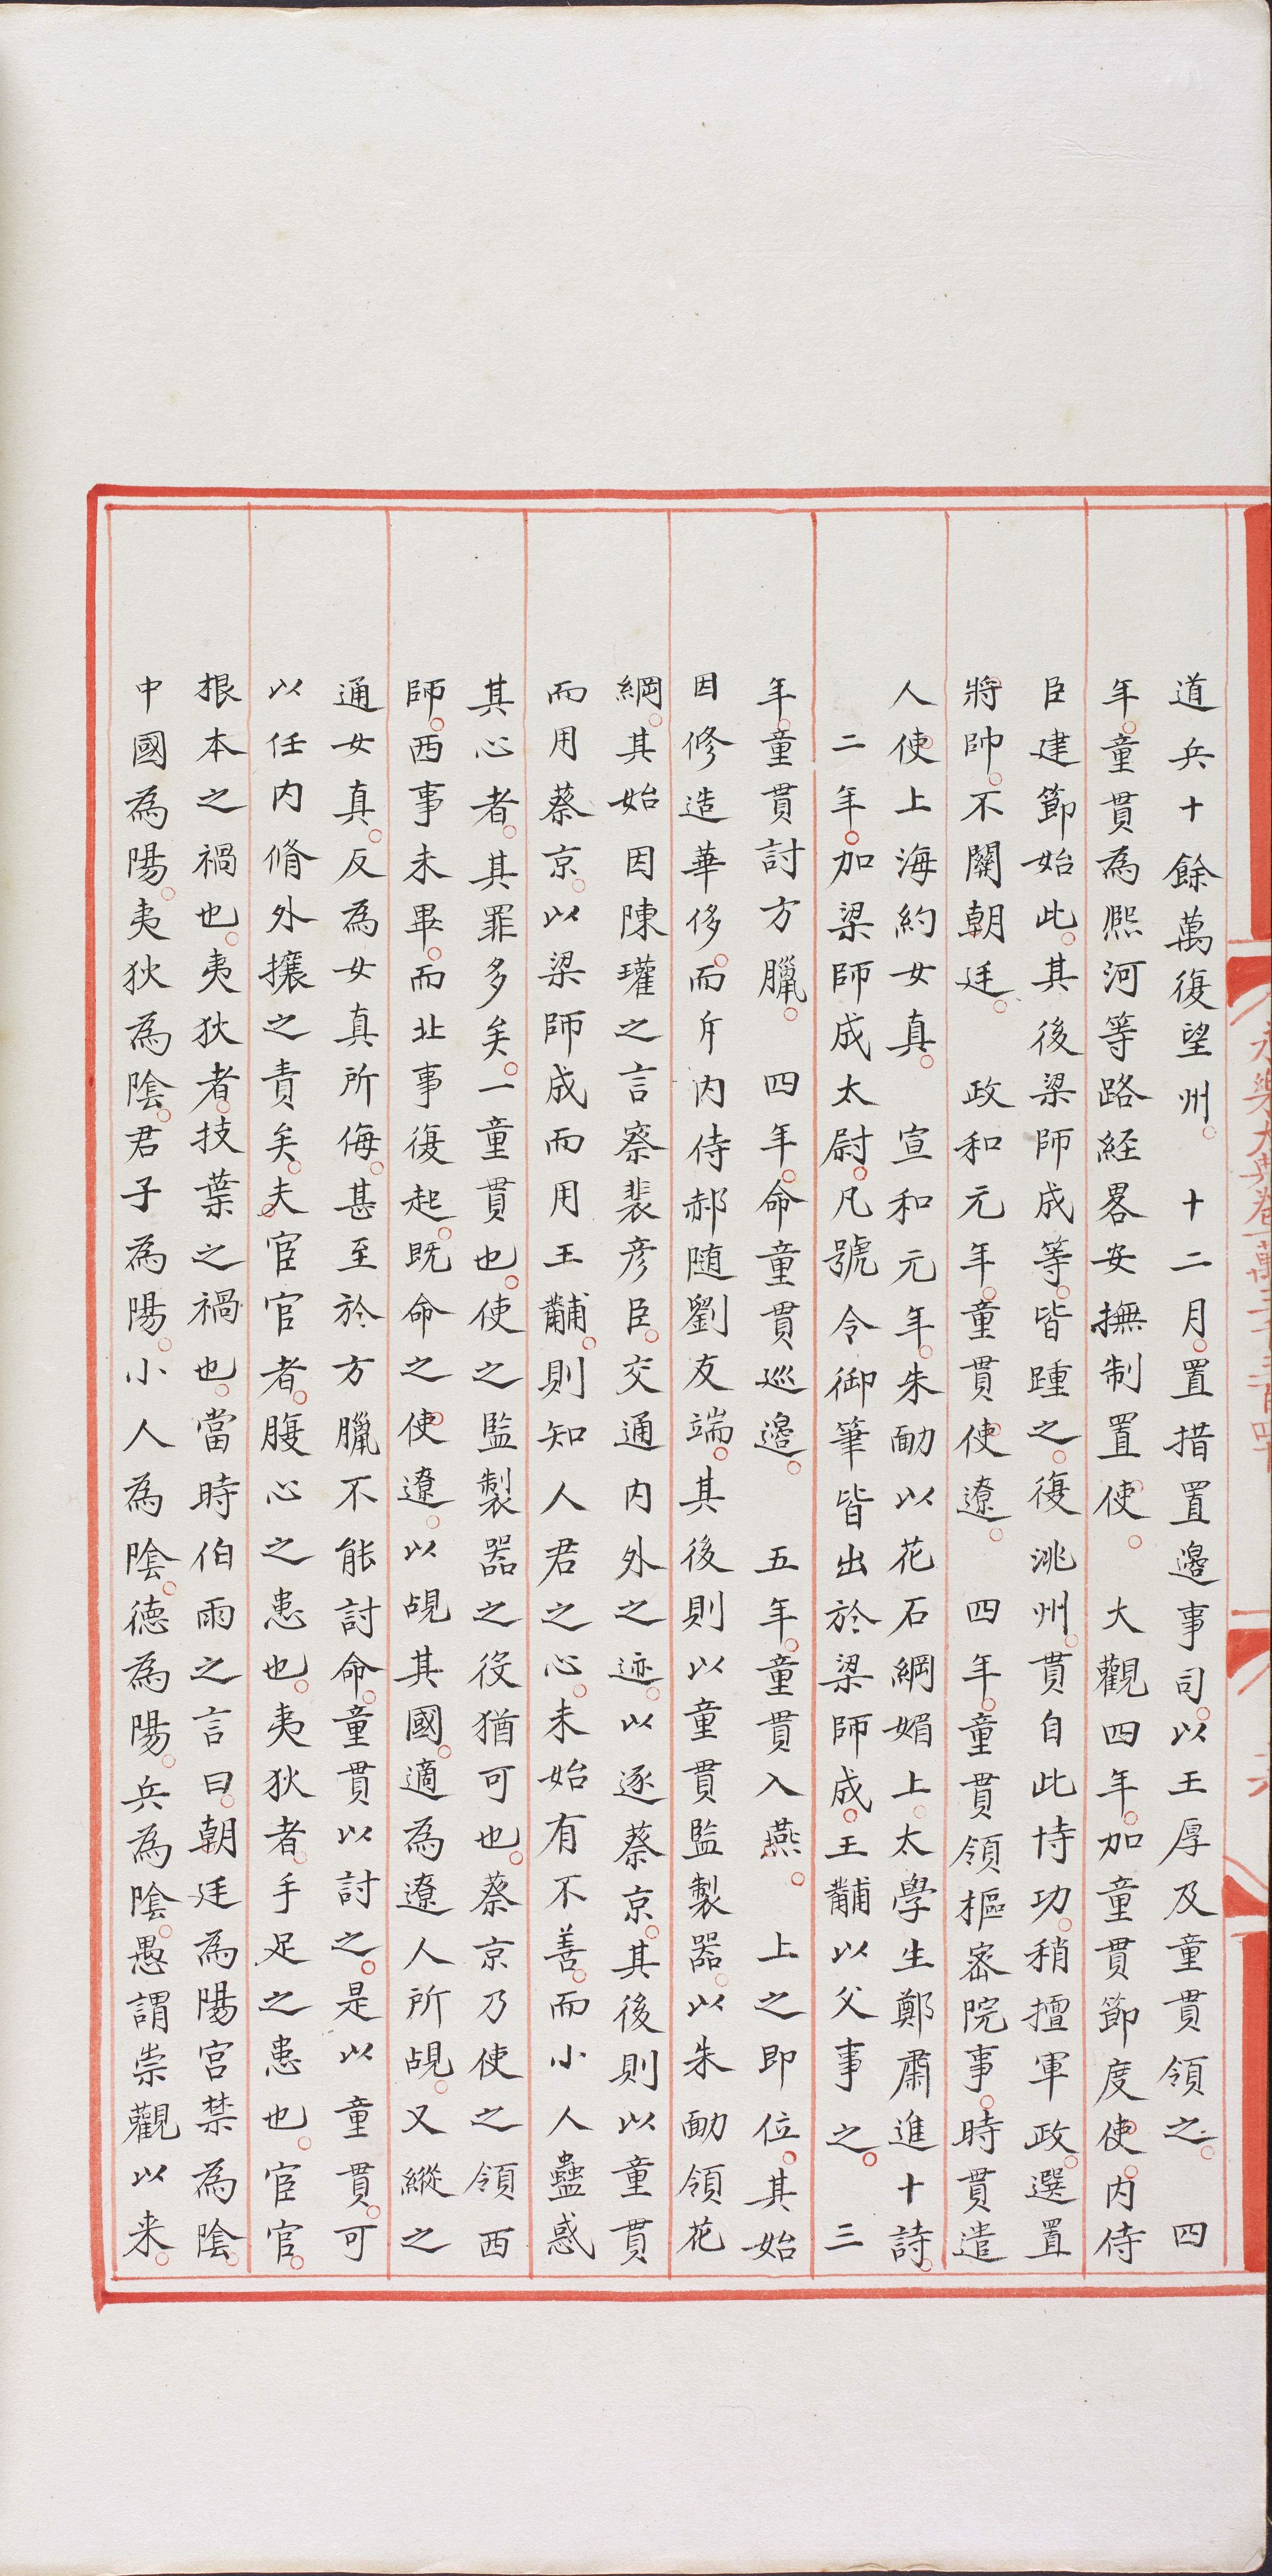 道兵十餘萬復望州。　十二月。置措置邊事司。以王厚及童貫領之。　四
年。童貫為熈河等路經畧安撫制置使。　大觀四年。加童貫節度使。内侍
臣建節始此。其後梁師成等。皆踵之。復洮州。貫自此恃功。稍擅軍政。選置
將帥。不關朝廷。　政和元年。童貫使遼。　四年。童貫領樞密院事。時貫遣
人使上海約女真。　宣和元年。朱勔以花石綱媚上。太學生鄭肅進十詩。
二年。加梁師成太尉。凡號令御筆皆出於梁師成。王黼以父事之。　三
年。童貫討方臘。　四年。命童貫巡邊。　五年。童貫入燕。　上之即位。其始
因修造華侈。而斥内侍郝随劉友端。其後則以童貫監製器。以朱勔領花
綱。其始因陳瓘之言察裴彦臣。交通内外之迹。以逐蔡京。其後則以童貫
而用蔡京。以梁師成而用王黼。則知人君之心。未始有不善。而小人蠱惑
其心者。其罪多矣。一童貫也。使之監製器之役猶可也。蔡京乃使之領西
師。西事未畢。而北事復起。既命之使遼。以覘其國。適為遼人所覘。又縱之
通女真。反為女真所侮。甚至於方臘不能討命。童貫以討之。是以童貫。可
以任内脩外攘之責矣。夫宦官者。腹心之患也。夷狄者。手足之患也。宦官。
根本之禍也。夷狄者。技葉之禍也。當時伯雨之言曰。朝廷為陽宫禁為陰。
中國為陽。夷狄為陰。君子為陽。小人為陰。德為陽。兵為陰。愚謂崇觀以来。
永樂大典卷一萬三千三百四十
六